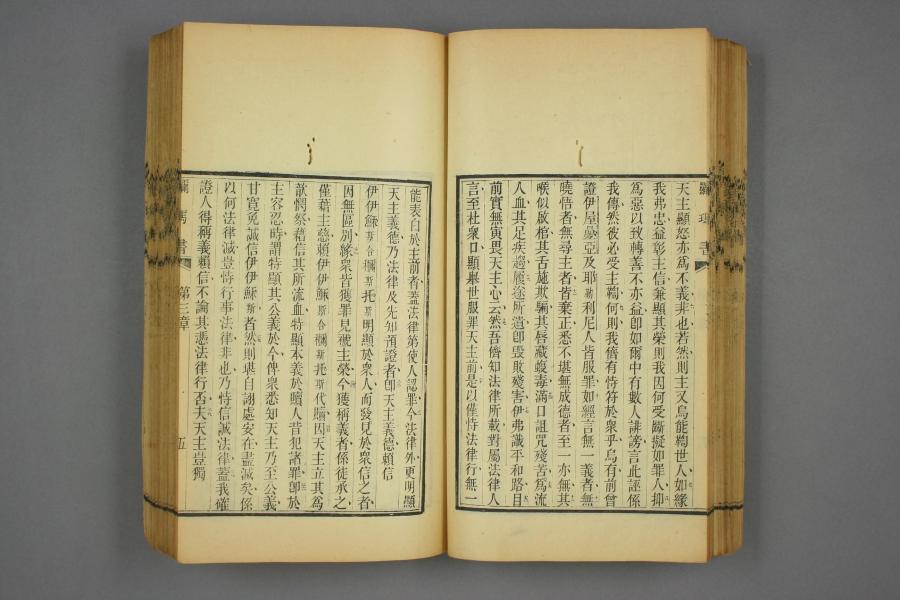 天主顯怒亦爲不義非也若然則主又烏能鞫世人如緣
我弗忠益彰主信兼顯其榮則我因何受斷擬如罪人抑
爲惡以致轉善不亦益卽如爾中有數人誹謗言此誣係
我傳然彼必受主鞫何則我儕有恃符於衆乎烏有前曾
證伊屋叠亞及耶勒利尼人皆服罪如經言無一義者無
曉悟者無尋主者皆棄正悉不堪無成德者至一亦無其
喉似啟棺其舌施欺騙其唇藏蝮毒滿口詛咒殘苦爲流
人血其足疾趨履途所遺卽毀敗殘害伊弗識平和路目
前實無寅畏天主心云然吾儕知法律所載對屬法律人
言至杜衆口顯舉世服罪天主前是以僅恃法律行無一
羅瑪書
能表白於主前者蓋法律第使人認罪今法律外更明顯
天主義德乃法律及先知預證者卽天主義德賴信
伊伊穌斯合爾斯托斯明顯於衆人而發見於衆信之者
因無區別緣衆皆獲罪見褫主榮今獲稱義者係徒承之
僅藉主慈賴伊伊穌斯合爾斯托斯代贖因天主立其爲
歆憫祭藉信其所流血特顯本義於贖人昔犯諸罪卽於
主容忍時謂特顯其公義於今俾衆悉知天主乃至公義
甘寬免誠信伊伊穌斯者然則堪自詡處安在盡滅矣係
以何法律滅豈恃行事法律非也乃恃信誠法律蓋我確
證人得稱義賴信不論其憑法律行否夫天主豈獨
羅馬書 第三章 五